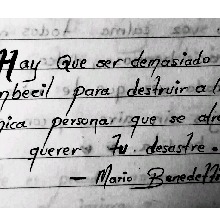 Hay que ser demasiado
mbecil para destruir a l
nica persona que se atre
querer tu desastre.
- Mario Benedetti